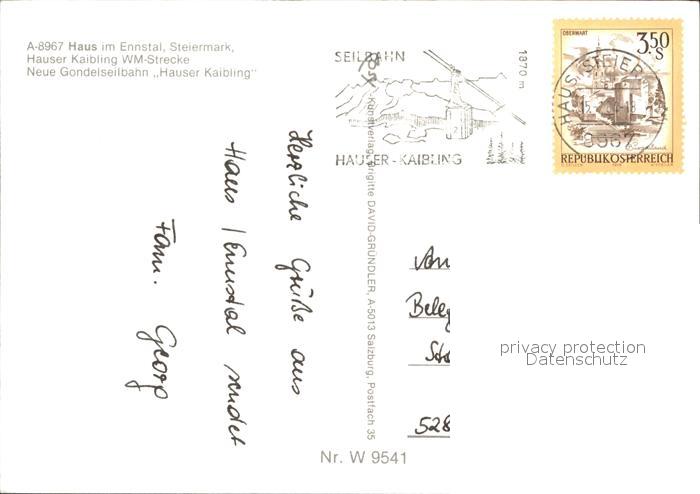 A-8967 Haus im Ennstal, Steiermark,
Hauser Kaibling WM-Strecke
Neue Gondelseilbahn „Hauser Kaibling"
SEILBAHN
1870 m
HAUSER-KAIBLING
HAUS, STEIER
8967
OBERWART
3.50
S
REPUBLIK ÖSTERREICH
Kunstverlag Brigitte DAVID-GRÜNDLER, A-5013 Salzburg, Postfach 35
Herzliche Grüße aus
Haus/Ennstal sendet
Fam. Georg
An
Beleg
528
privacy protection
Datenschutz
Nr. W 9541